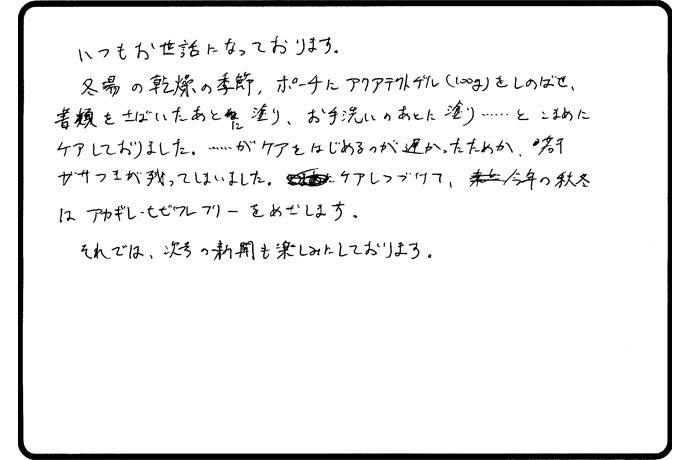 いつもお世話になっております。
冬場の乾燥の季節，ポーチにアクアテクトゲル(100g)をしのばせ、
書類をさばいたあとに塗り、お手洗いのあとに塗り……とこまめに
ケアしておりました。……がケアをはじめるのが遅かったためか、若干
ガサつきが残ってしまいました。ケアしつづけて、今年の秋冬
はアカギレ・ヒビワレフリーをめざします。
それでは、次号の新聞も楽しみにしております。